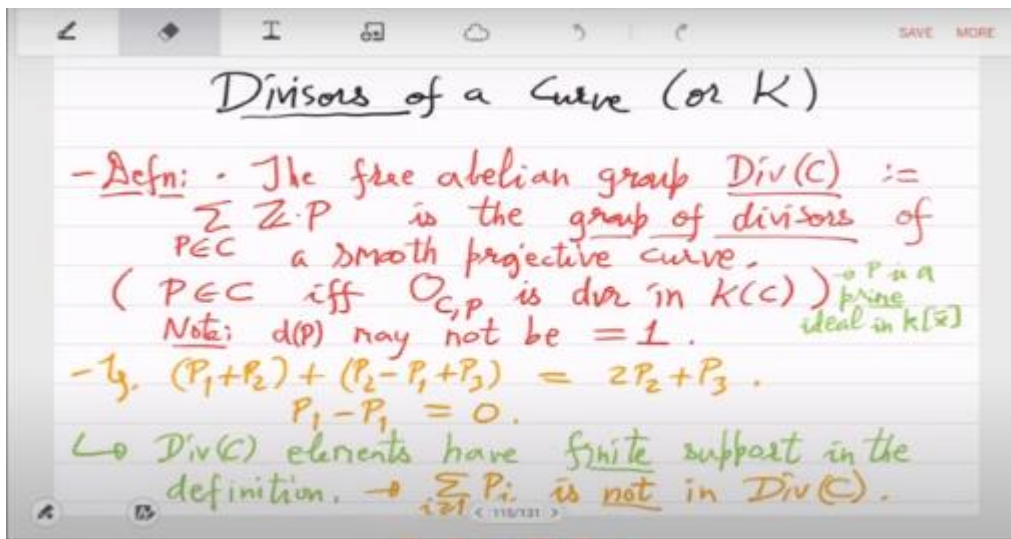 SAVE MORE
Divisors of a Curve (or K)
- Defn: · The free abelian group Div(C) :=
∑ ℤ·P is the group of divisors of
P∈C a smooth projective curve.
( P∈C iff O_{C,P} is dvr in K(C) ) → P is a
prime
Note: d(P) may not be = 1. ideal in k[x̄]
- Eg. (P₁+P₂) + (P₂-P₁+P₃) = 2P₂+P₃ .
P₁-P₁ = 0.
↳ Div(C) elements have finite support in the
definition. → ∑_{i≥1} P_i is not in Div(C).
< 110/131 >